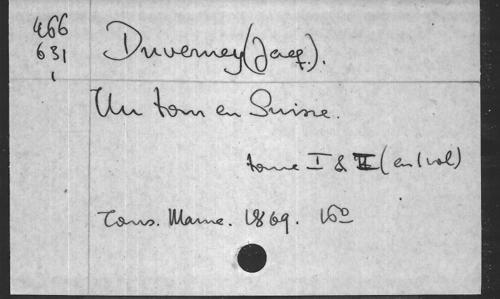 466
631
1
Duverney (Jacq.).
Un tour en Suisse.
tome I & II (en 1 vol)
Tours. Mame. 1869. 16°